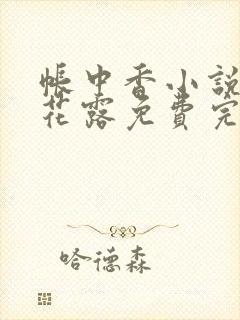 帳中香小說
花露免費完
哈德森